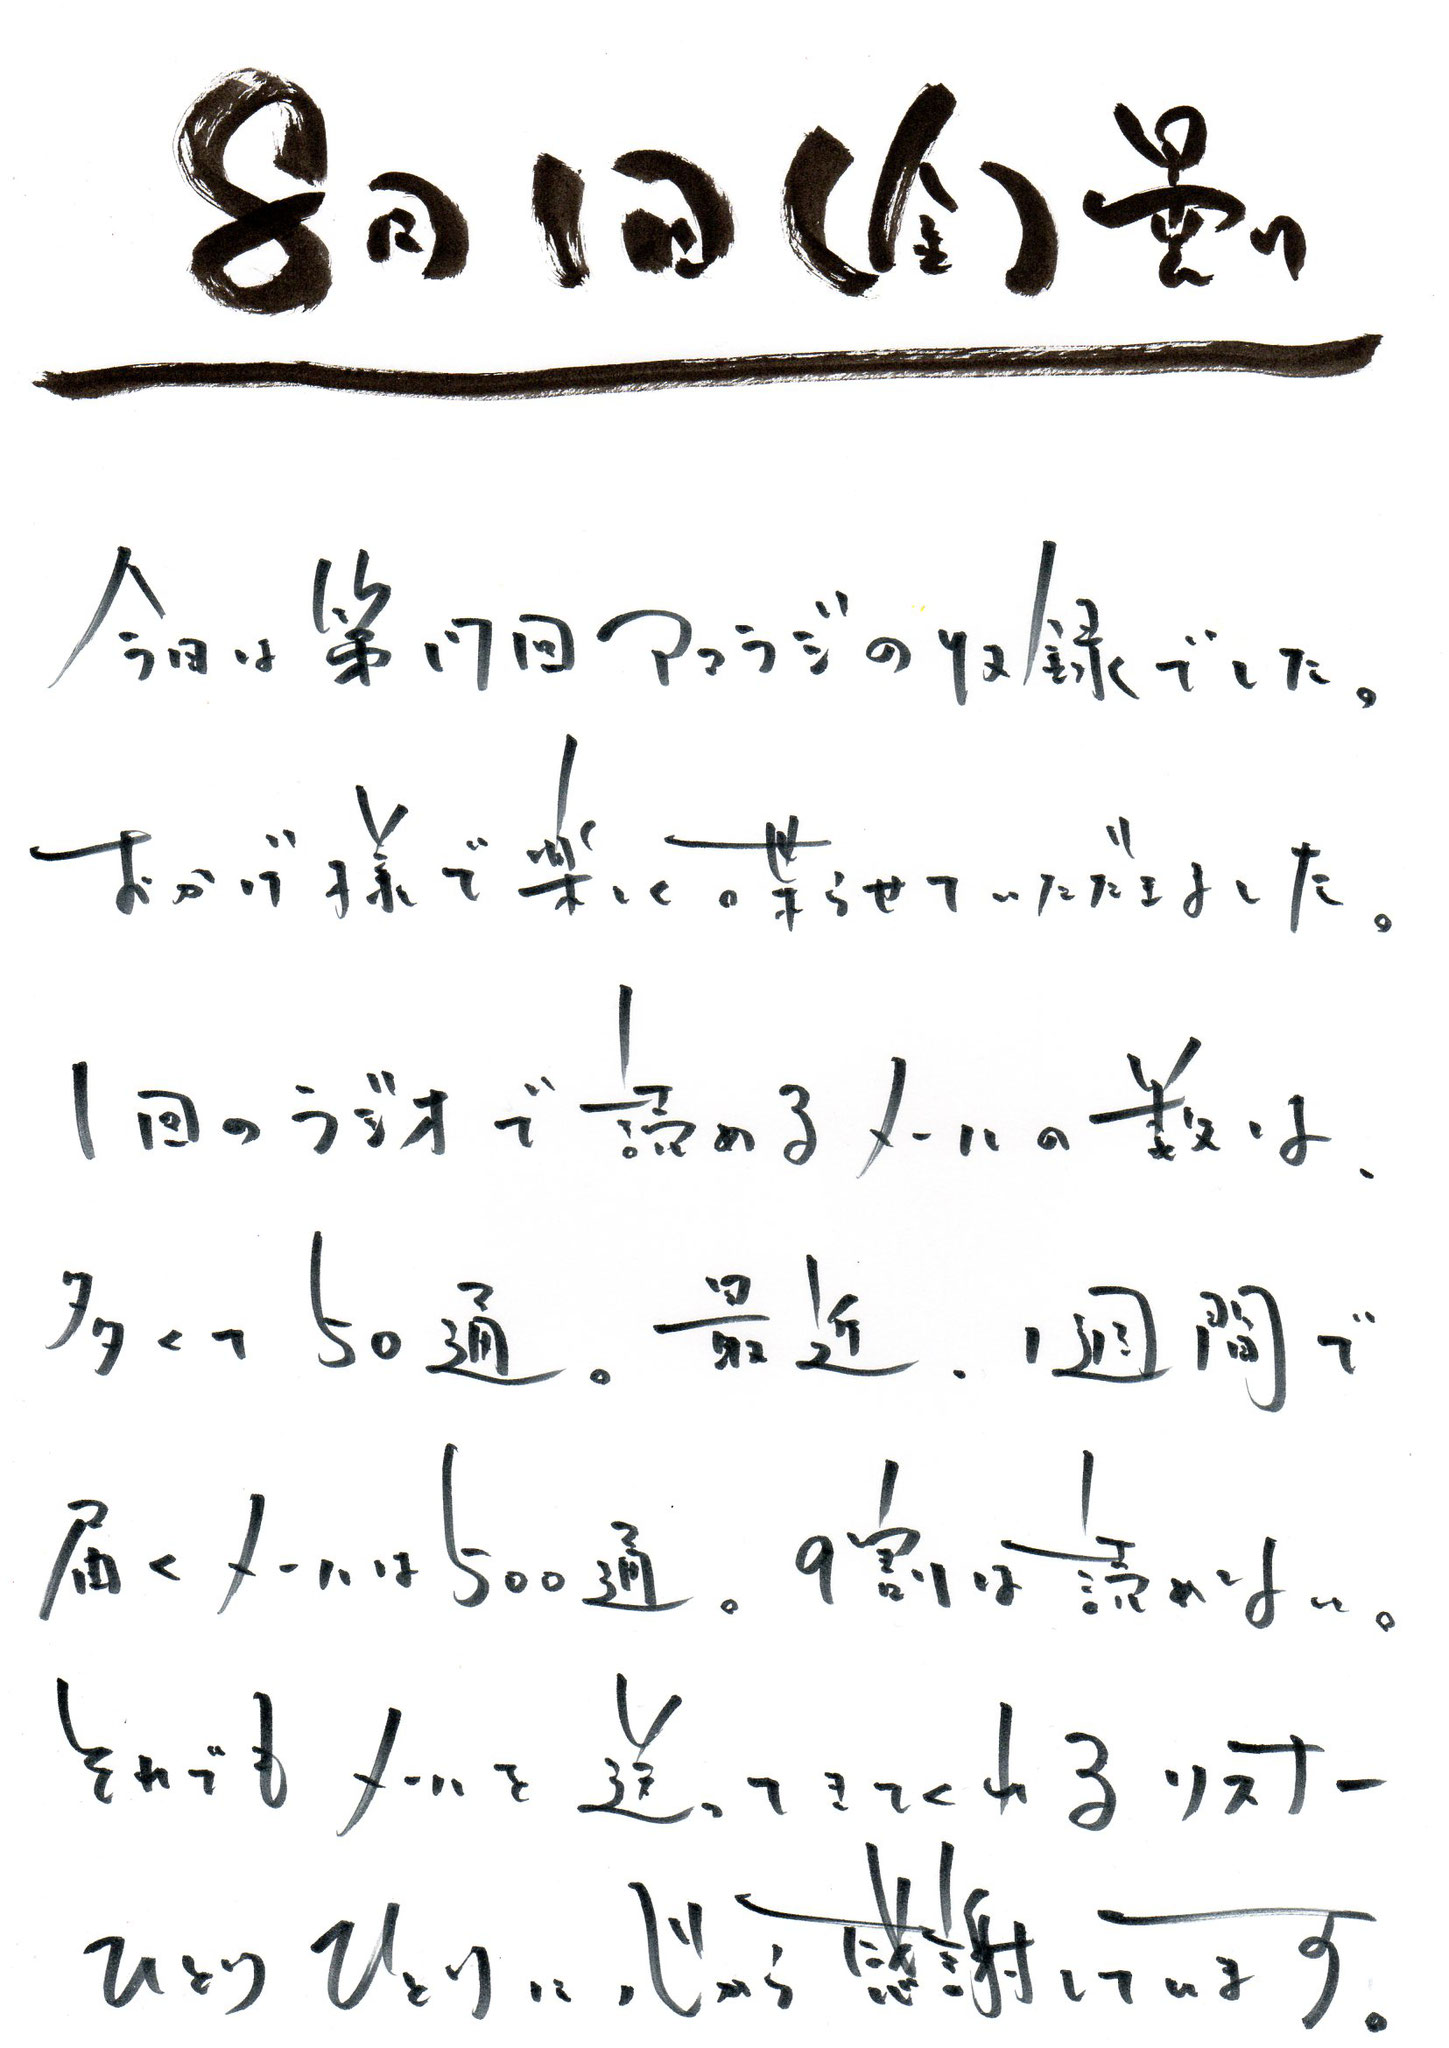 8月1日(金)曇り
今日は第17回アコラジの収録でした。
おかげ様で楽しく喋らせていただきました。
1回のラジオで読めるメールの数は、
多くて50通。最近、1週間で
届くメールは500通。9割は読めない。
それでもメールを送ってきてくれるリスナー
ひとりひとりに心から感謝しています。